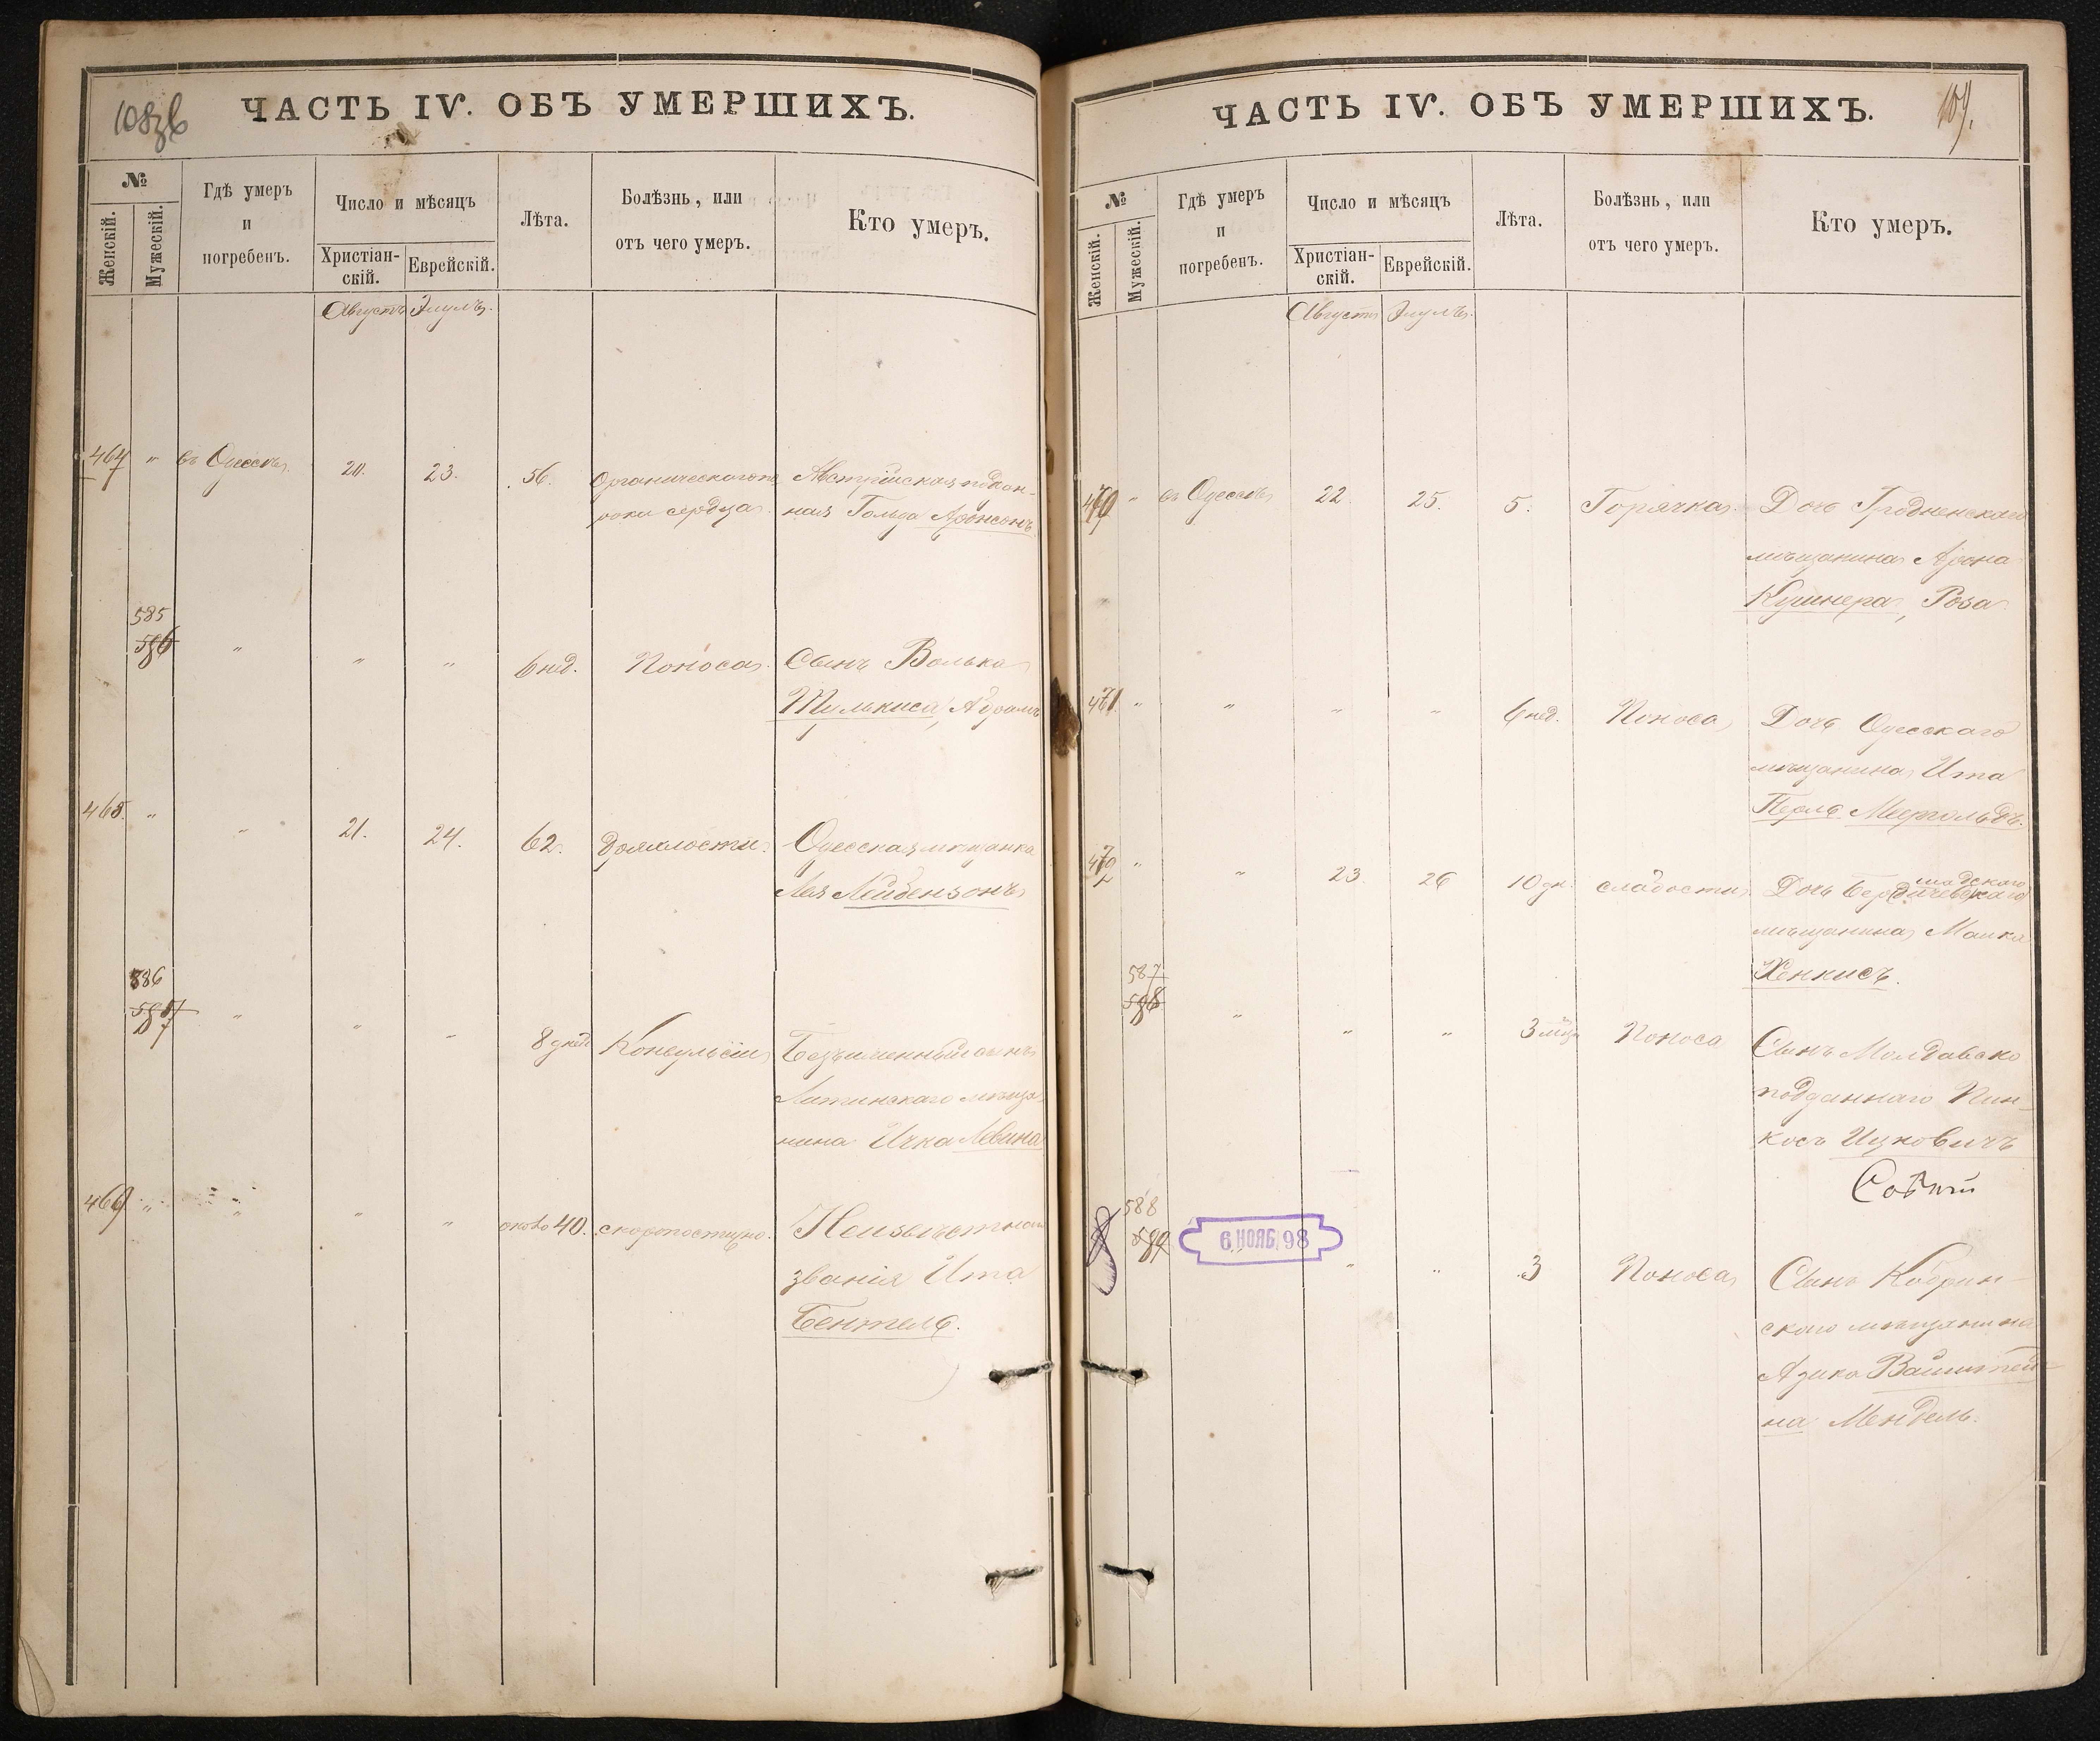 108 об
ЧАСТЬ IV. ОБЪ УМЕРШИХЪ.
№
Женскій.
Мужескій.
Гдѣ умеръ
и
погребенъ.
Число и мѣсяцъ
Христіан-
скій.
Еврейскій.
Лѣта.
Болѣзнь, или
отъ чего умеръ.
Кто умеръ.
Августъ Элулъ.
467 " въ Одессѣ 20. 23. 56. Органическаго по- Австрійская поддан-
роки сердца. ная Гольда Аронсонъ
585
586 " " " 6 нед. Поноса. Сынъ Волька
Шулькиса, Абрамъ
468. " " 21. 24. 62. Дряхлости. Одесская мѣщанка
Лея Лейбензонъ
586
587 " " " 8 дней Конвульсіи Безъименный сынъ
Литинскаго мѣща-
нина Ичка Левина
469 " " " " около 40. скоропостижно. Неизвѣстнаго
званія Ита
Бентель.
109.
ЧАСТЬ IV. ОБЪ УМЕРШИХЪ.
№
Женскій.
Мужескій.
Гдѣ умеръ
и
погребенъ.
Число и мѣсяцъ
Христіан-
скій.
Еврейскій.
Лѣта.
Болѣзнь, или
отъ чего умеръ.
Кто умеръ.
Августъ Элулъ.
470 " въ Одессѣ 22. 25. 5. Горячка. Дочь Гродненскаго
мѣщанина Арона
Кушнера, Роза
471. " " " " 6 нед. Поноса Дочь Одесскаго
мѣщанина Ита
Перль
472 " " 23. 26 10 дн. слабости Дочь Бердичевскаго
мѣщанина Малка
Хенкисъ.
587
588 " " " 3 мѣс. Поноса Сынъ Молдавско
подданнаго Пин-
косъ Ицковичъ
588
589 6 НОЯБ. 98 " " 3 Поноса Сынъ Кобрин-
скаго мѣщанина
Азика Вайнштей-
на Мендель.